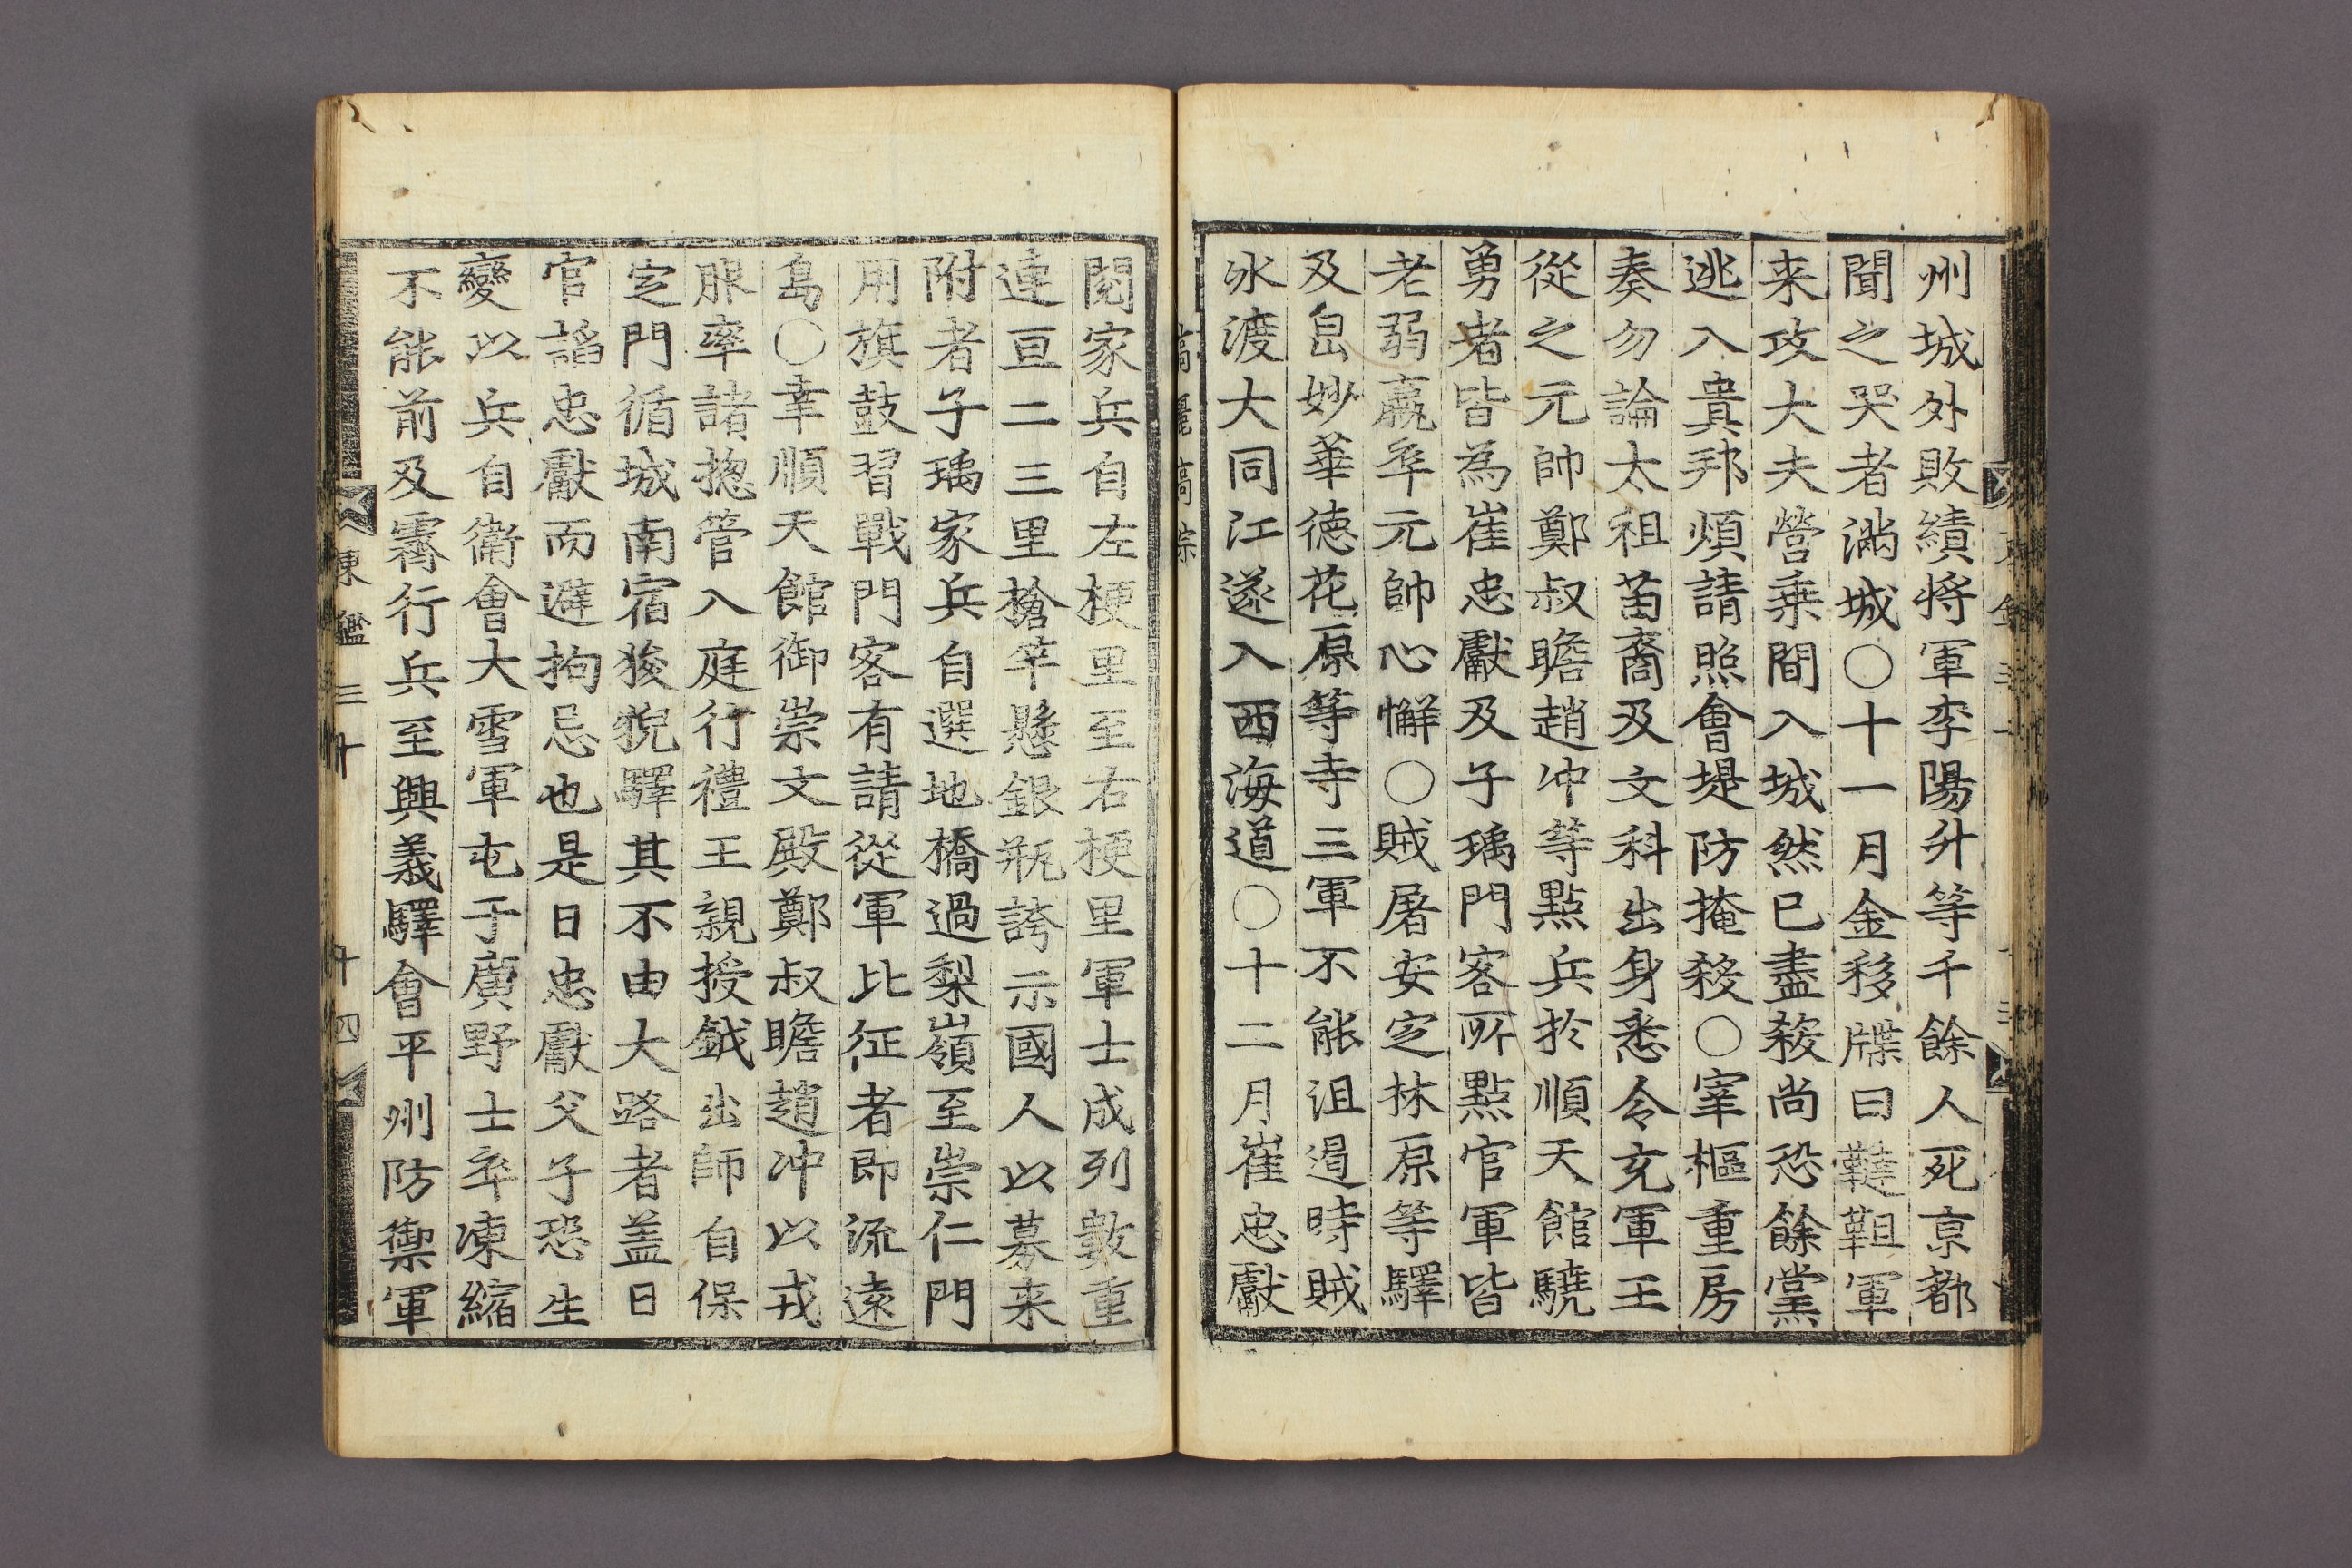 州城外敗績將軍李陽升等千餘人死京都
聞之哭者滿城○十一月金移牒曰韃靼軍
来攻大夫營乗間入城然已盡殺尚恐餘黨
逃入貴邦煩請照會堤防掩殺○宰樞重房
奏勿論太祖苗裔及文科出身悉令充軍王
從之元帥鄭叔瞻趙冲等點兵於順天館驍
勇者皆為崔忠獻及子瑀門客所點官軍皆
老弱羸卒元帥心懈○賊屠安定林原等驛
及岊妙華德花原等寺三軍不能沮遏時賊
氷渡大同江遂入西海道○十二月崔忠獻
高麗高宗
閱家兵自左梗里至右梗里軍士成列數重
連亘二三里槍竿懸銀瓶誇示國人以募来
附者子瑀家兵自選地橋過梨嶺至崇仁門
用旗鼓習戰門客有請從軍比征者即流遠
島○幸順天館御崇文殿鄭叔瞻趙冲以戎
服率諸摠管入庭行禮王親授鉞出師自保
定門循城南宿狻猊驛其不由大路者盖日
官諂忠獻而避拘忌也是日忠獻父子恐生
變以兵自衛會大雪軍屯于廣野士卒凍縮
不能前及霽行兵至興義驛會平州防禦軍
東鑑三十 十四